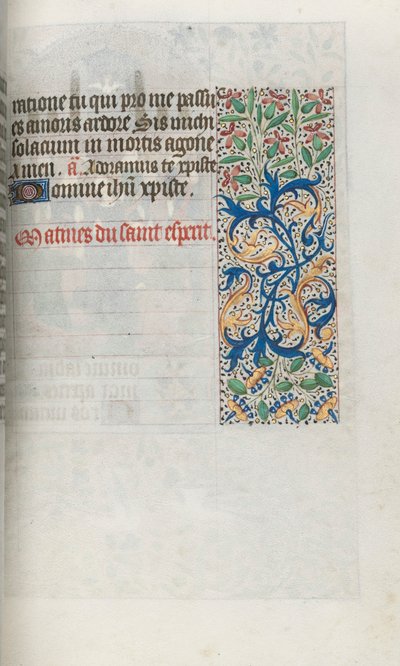 ratione tu qui pro me passu
es amoris ardore Sis michi
solacium in mortis agone
Amen. a Adoramus te xpiste
Domine ihu xpiste.
Matines du saint esprit.